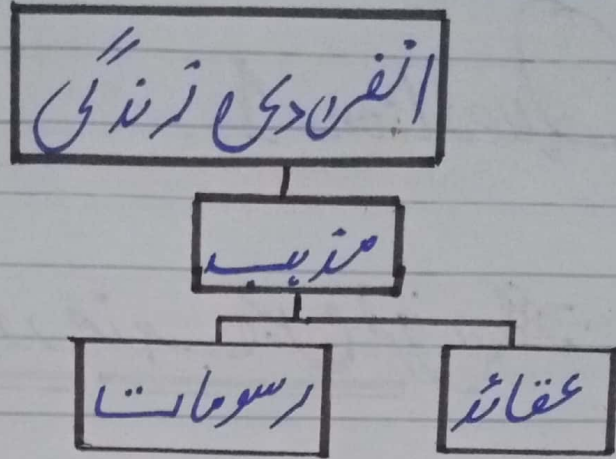 انفرادی زندگی
مذہب
عقائد
رسومات